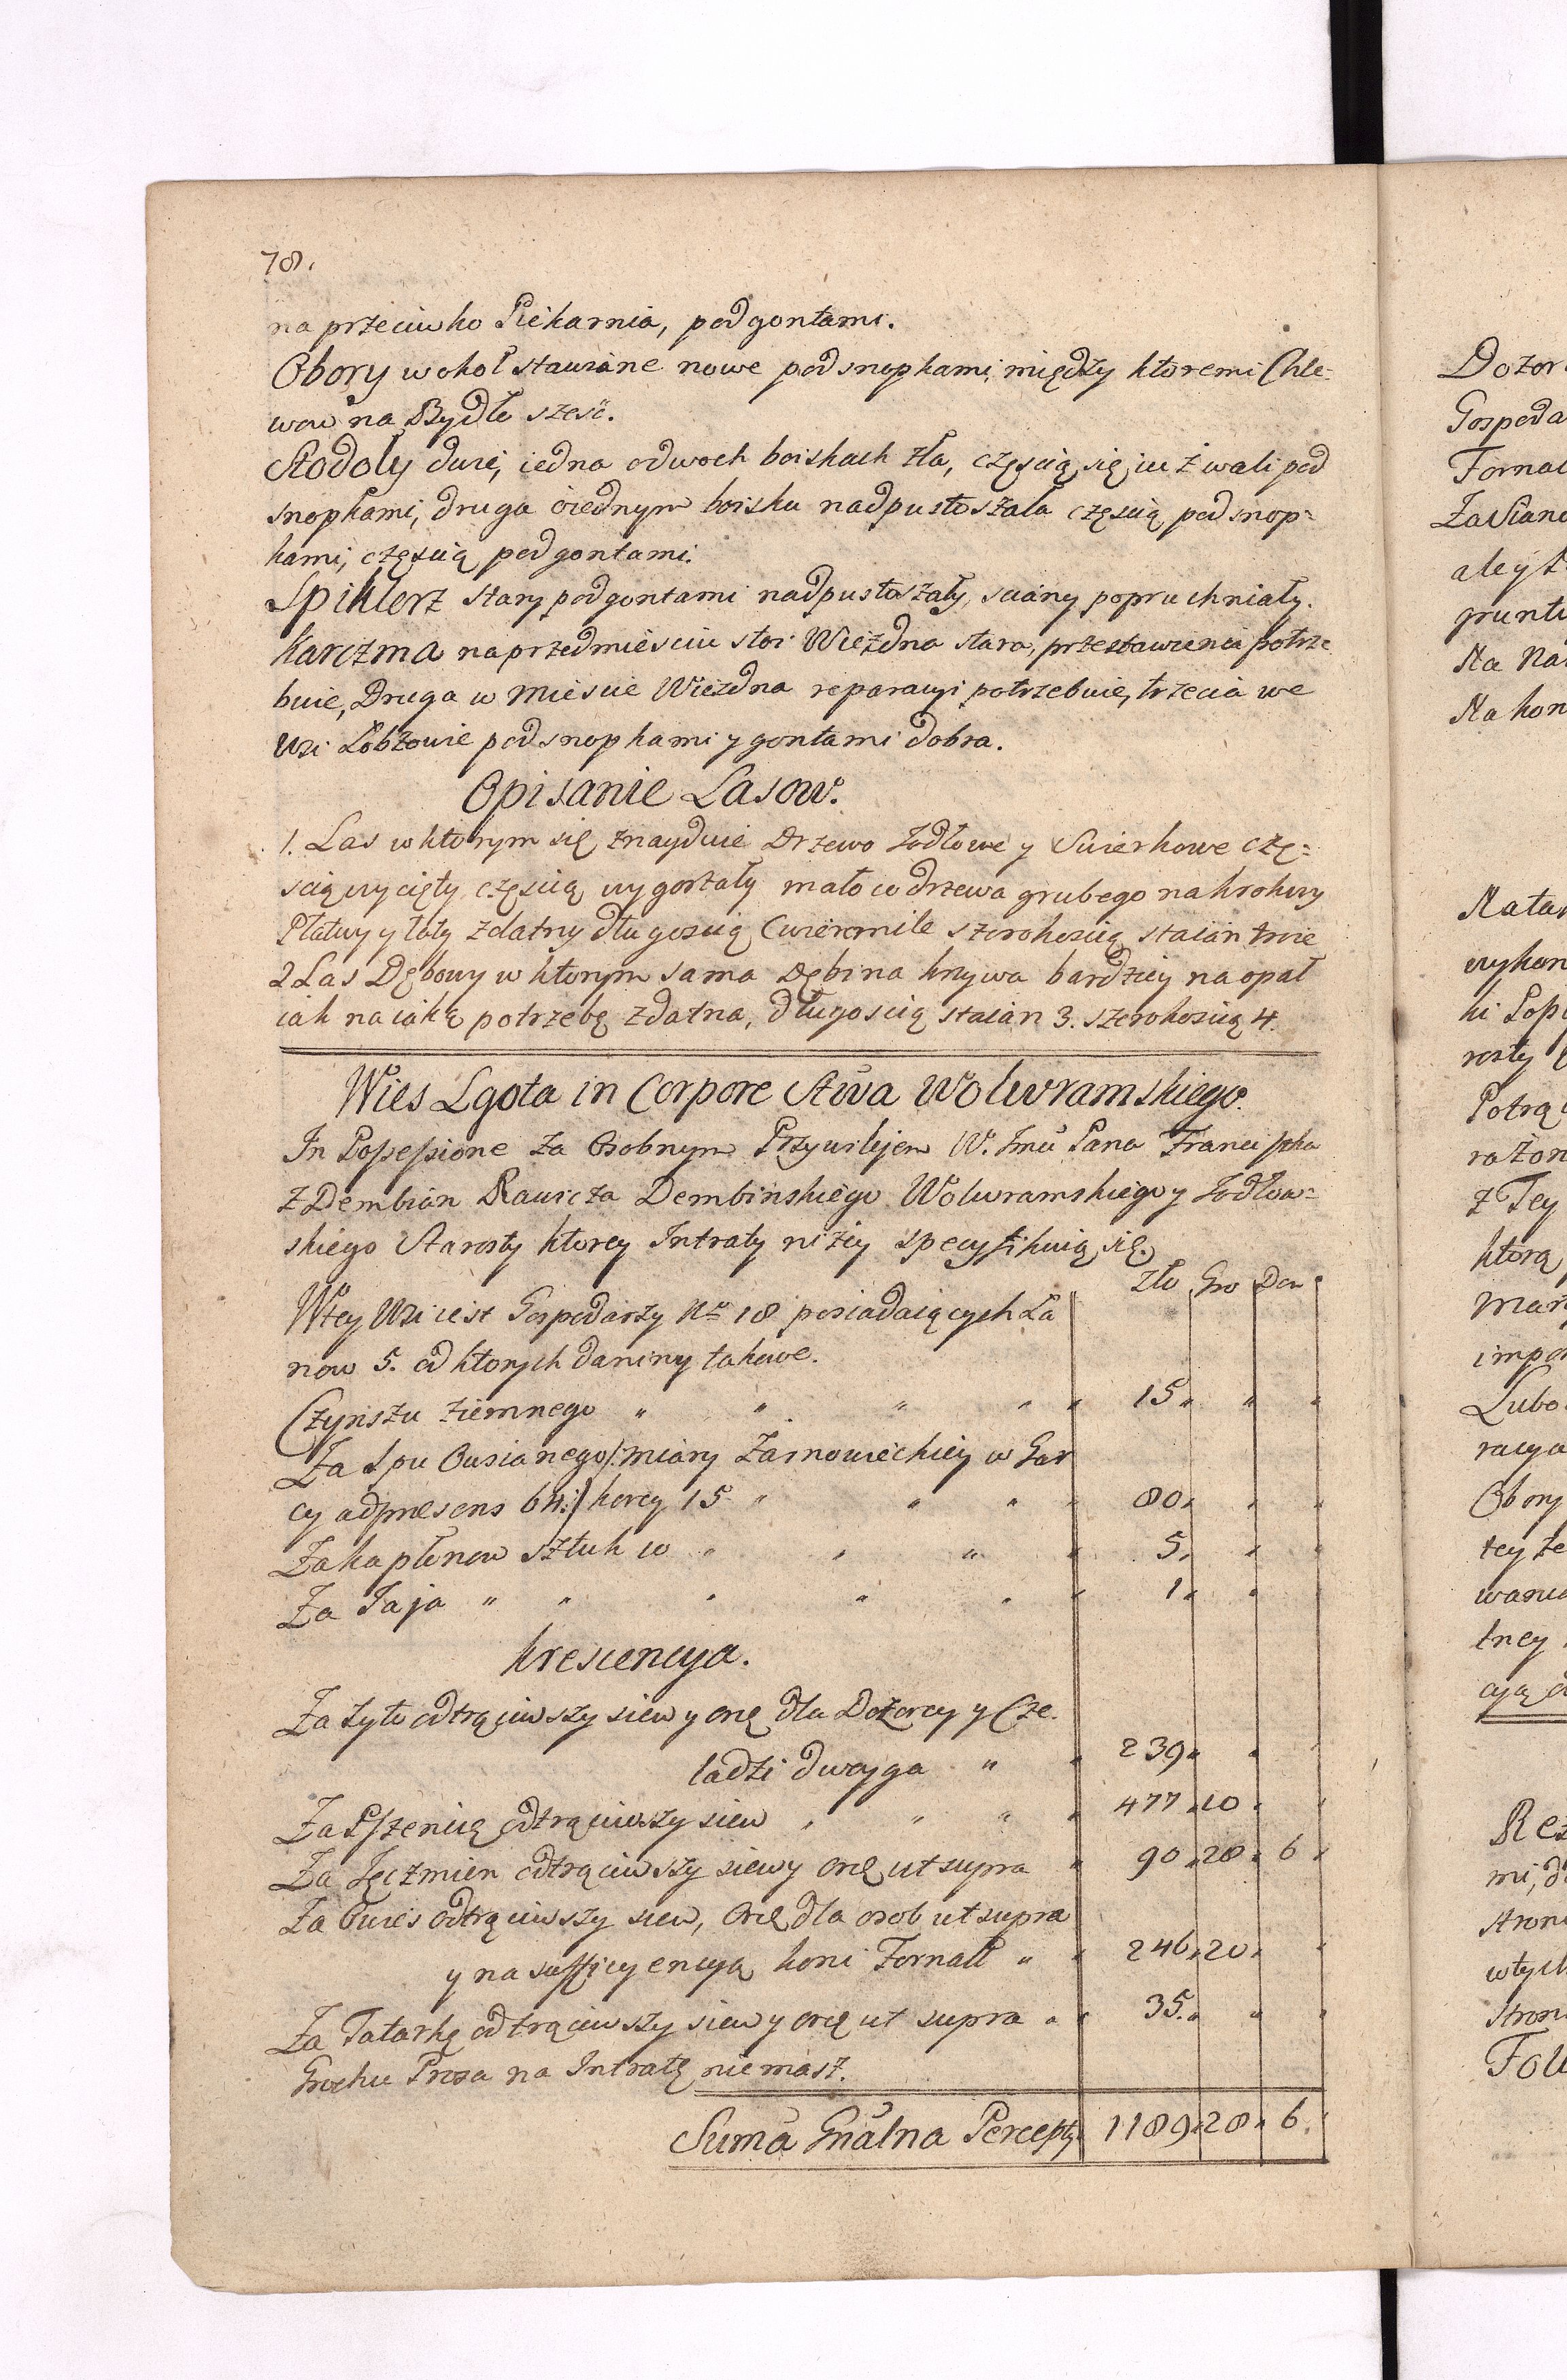 78.
na przeciwko Piekarnia, pod gontami.
Obory wokoł stawiane nowe pod snopkami, między ktoremi Chle=
wow na Bydło sześć.
Stodoły dwie, iedna o dwoch boiskach zła, częscią się iuż wali pod
snopkami, druga o iednym boisku nadpustoszała częscią pod snop=
kami, częscią pod gontami.
Spiklerz stary pod gontami nadpustoszały, sciany popruchniały.
Karczma na przedmiesciu stoi Wiezdna stara, przestawienia potrze
buie, Druga w Miescie Wiezdna reparacyi potrzebuie, trzecia we
Wsi Łobzowie pod snopkami y gontami dobra.
Opisanie Lasow.
1. Las w ktorym się znayduie Drzewo Jodłowe y Swierkowe czę=
scią wycięty częscią wygorzały mało co drzewa grubego na krokwy
Płatwy y łaty zdatny długoscią Cwiercmile szerokoscią staian trzie
2 Las Dębowy w ktorym sama Dębina krzywa bardziey na opał
iak na iaką potrzebę zdatna, długoscią staian 3. szerokoscią 4.
Wies Lgota in Corpore Stwa Wolwramskiego.
In Possessione za Osobnym Przywilejem W. Jmci Pana Franciszka
z Dembian Rawicza Dembinskiego Wolwramskiego y Jodłow=
skiego Starosty ktorey Intraty niżey specyfikuią się.
Zło Gro Den
W tey Wsi iest Gospodarzy Nro 18 posiadaiących Ła
now 5. od ktorych daniny takowe.
Czynszu ziemnego " " " " " 15 " " "
Za Spu Owsianego /: miary Zarnowieckiey w Gar
cy ad presens 64 :/ korcy 15 " " " " 80 " " "
Za kapłonow sztuk 10 " " " " 5 " " "
Za Jaja " " " " " " 1 " " "
Krescencya.
Za żyto odtrąciwszy siew y orę dla Dozorcy y Cze
ladzi dwoyga " " 239 " " "
Za Pszenicę odtrąciwszy siew " " " " 477 " 10 " "
Za Jęczmien odtrąciwszy siew y orę ut supra " 90 " 28 " 6 "
Za Owies odtrąciwszy siew, Orę dla osob ut supra
y na sufficyencyą koni Fornall " " 246 " 20 " "
Za Tatarkę odtrąciwszy siew y orę ut supra " " 35 " " "
Grochu Prosa na Intratę nie masz.
Suma Gnalna Percepty 1189 " 28 " 6 "
Dozor
Gospoda
Fornal
Za Sian
ale y t
grunt
Na Na
Na kon
Natar
wykon
ki Pop
rosty
Potrą
z Tey
ktora
impo
Lubo
racya
Obory
tey że
tney
mi, d
stron
wtych
Stron